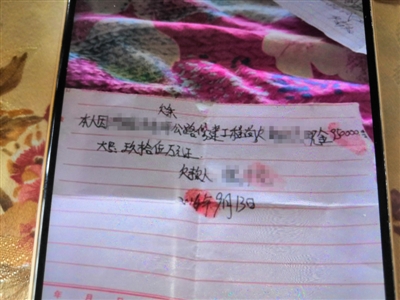 欠条
本人因公路修建工程尚欠现金950000元
大写玖拾伍万元正
欠款人
年9月13日